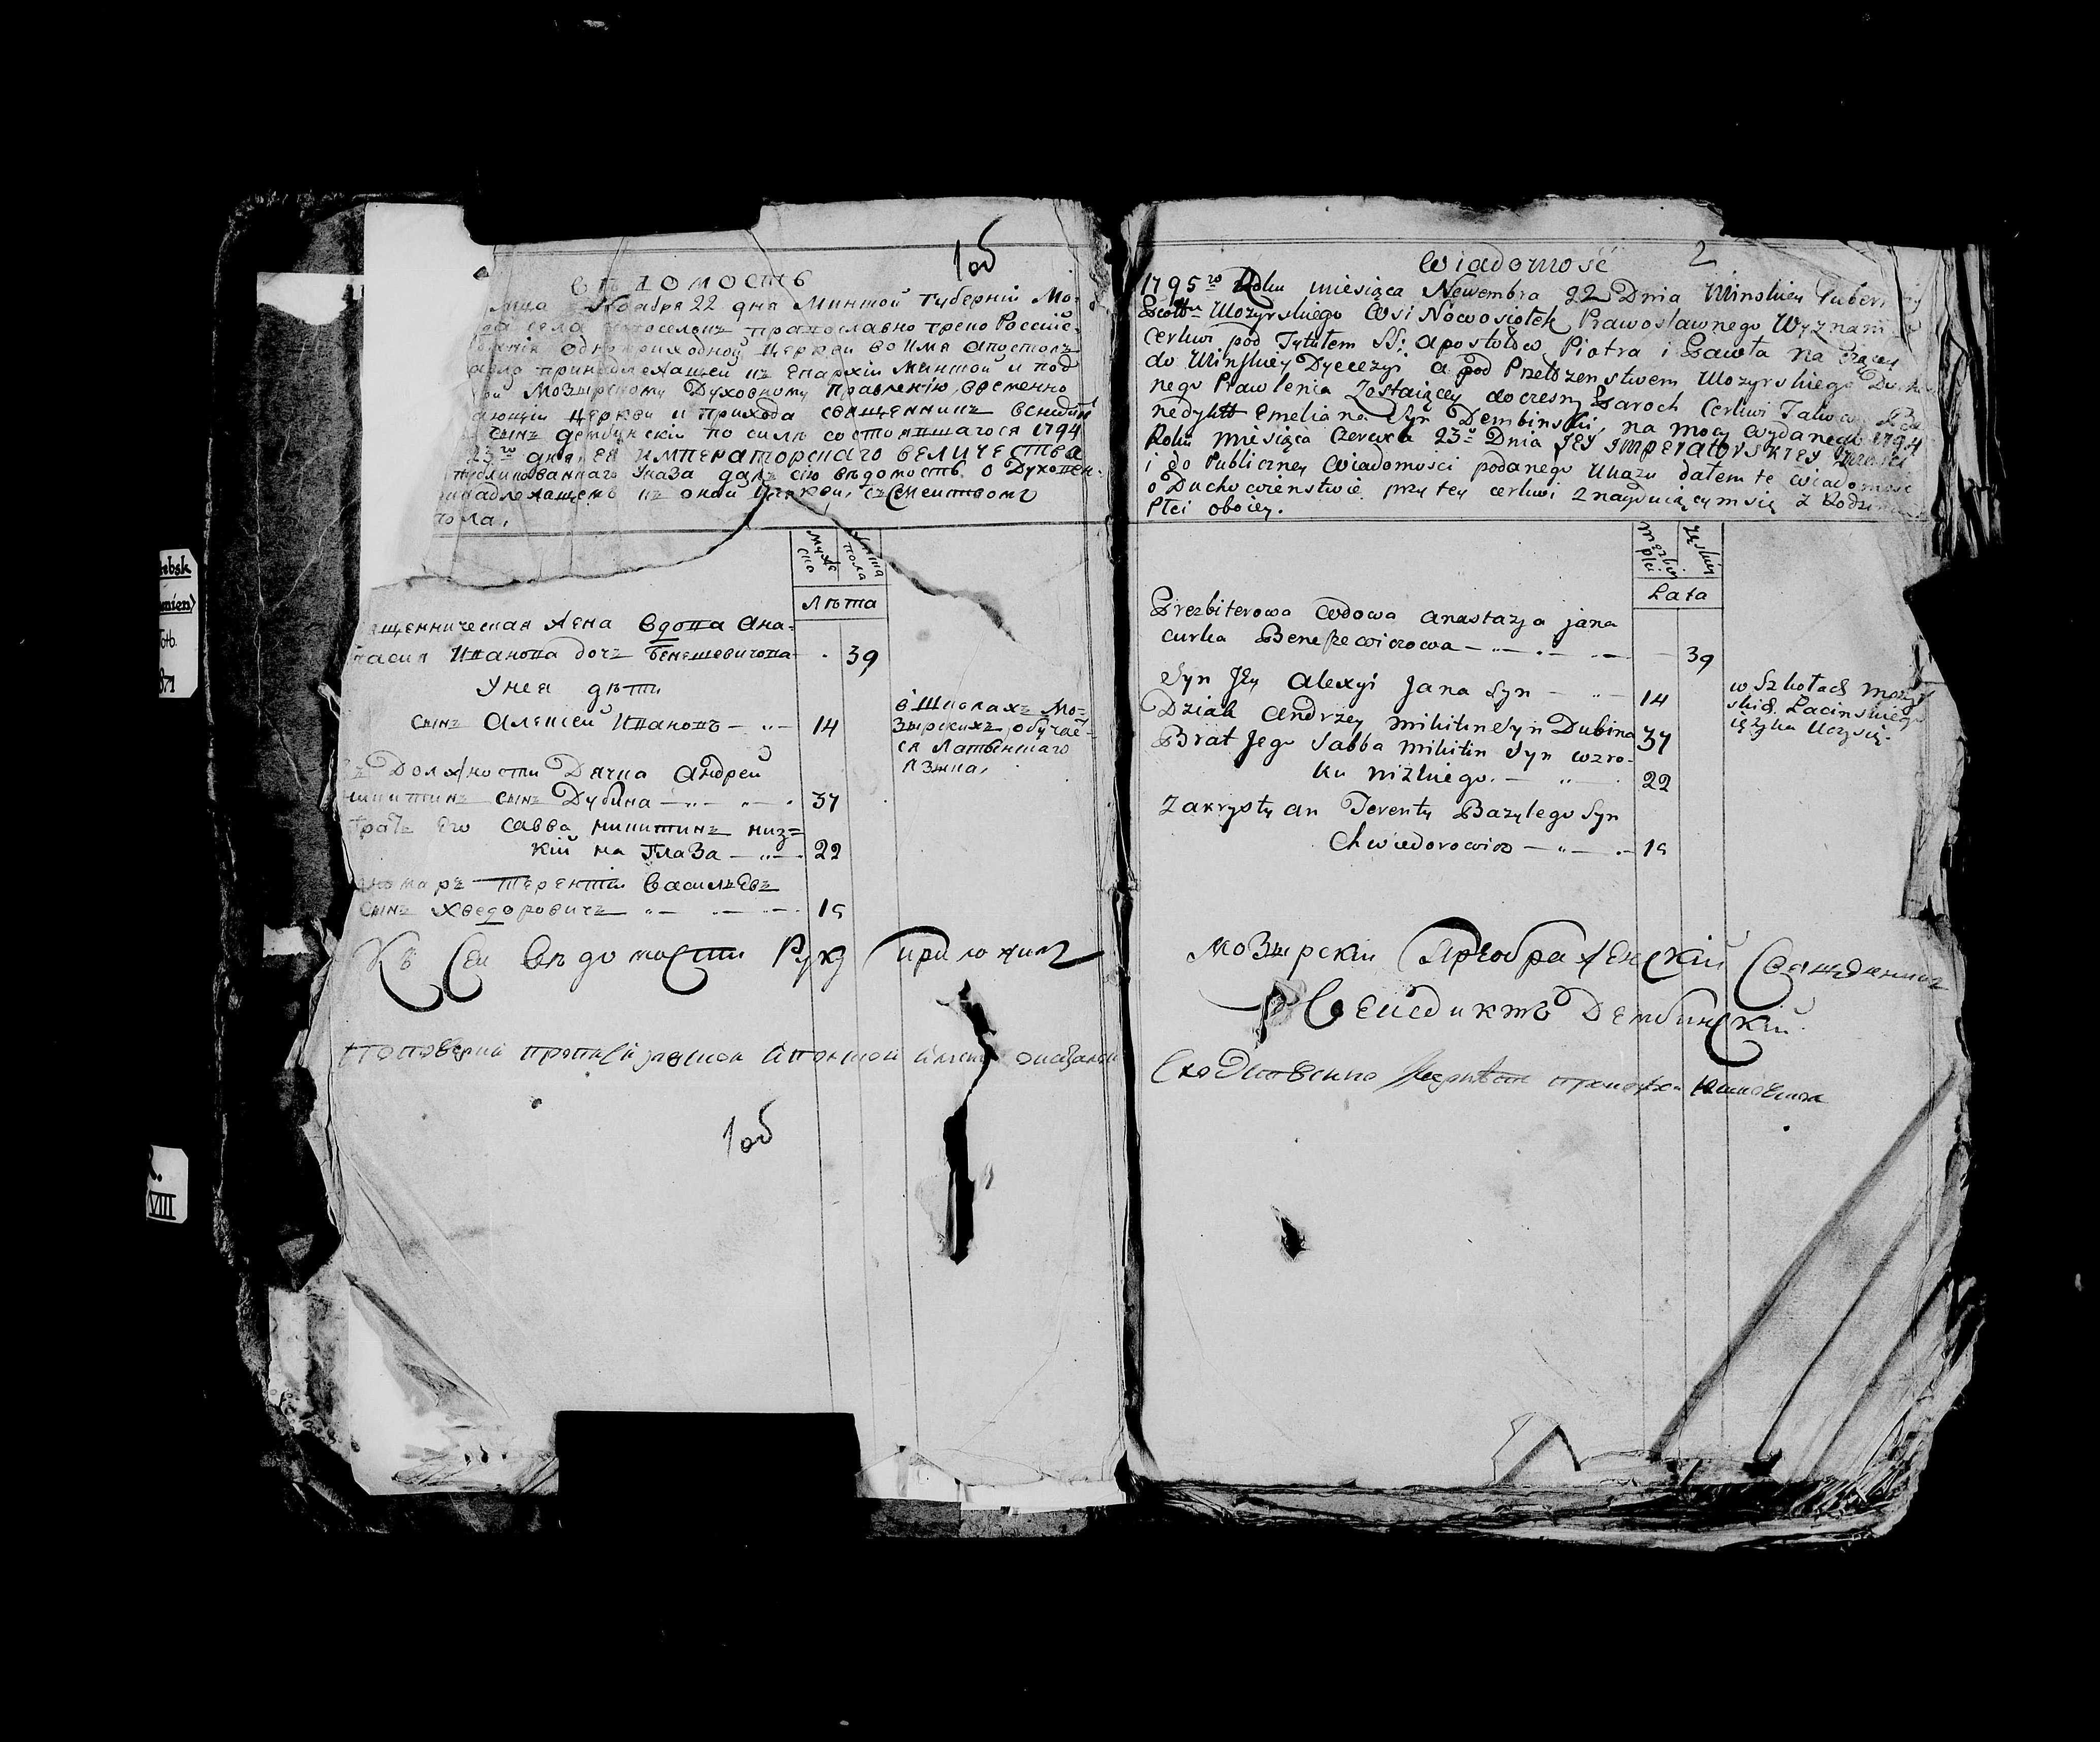 1об
вѣдомость
мца Ноября 22 дня Минской Губернїи Мо-
села Новоселокъ православно греко Россїйс-
однoприходной Церкви во имя Апостолъ
принадлежащей къ Епархїи Минской и под
Мозырскому Духовному Правленїю, временно
ающїй Церкви и прихода священникъ Венидик
сынъ Дембинскїй по силѣ состоявшагося 1794
23го дня ЕЯ ИМПЕРАТОРСКАГО ВЕЛИЧЕСТВА
Указа далъ сїю вѣдомость о Духовен-
надлежащемъ къ оной Церкви, съ Семействомъ
пола,
мужеска
женска пола
Лѣта
ященническая жена вдова Ана-
тасия Иванова дочь Бенешевичова - 39
У нея дѣти
сынъ Алексей Ивановъ 14
в Школахъ Мо-
зырскихъ обучае-
ся Латынскаго
язика,
Должности Дячка Андрей
никитинъ сынъ Дубина 37
братъ Его Савва никитинъ низ=
кїй на Глаза 22
пономаръ Терентїй Васильевъ
Сынъ Хведоровичъ 15
Къ Сей Вѣдомости Руку приложилъ
1об
2
Wiadomość
1795go Roku miesiąca Nowembra 22 Dnia Minskiey Guberny
Mozyrskiego Wsi Nowosiołek Prawosławnego Wyznania
Cerkwi pod Tytułem SS: Apostołow Piotra i Pawła należącey
do Minskiey Dyecezyi a pod Przełożenstwem Mozyrskiego Ducho
nego Prawlenia Zostaiącey doczesny Paroch Cerkwi Takowey Be
nedykt Emeliana Syn Dembinski, na mocy wydanego 1794
Roku miesiąca Czerwca 23o Dnia JEY IMPERATORSKIEY Mości
i do Publiczney Wiadomości podanego Ukazu dałem tę wiadomość
o Duchowienstwie przy tey cerkwi znayduiącym się z Rodziną
Płci oboiey.
Męzkiey płci
Żęskiey
Lata
Prezbiterowa Wdowa Anastazya Jana
curka Beneszewiczowa - 39
Syn Jey Alexyi Jana Syn 14
w Szkołach Mozyr
skich Łacinskiego
ięzyka Uczysię.
Dziak Andrzey Mikitin Syn Dubina 37
Brat Jego Sabba Mikitin Syn wzro-
ku nizkiego. 22
Zakrystyan Terenty Bazylego Syn
Chwiedorowicz 15
Мозырскїй Преображенскїй Священникъ
Венедиктъ Дембинскїй